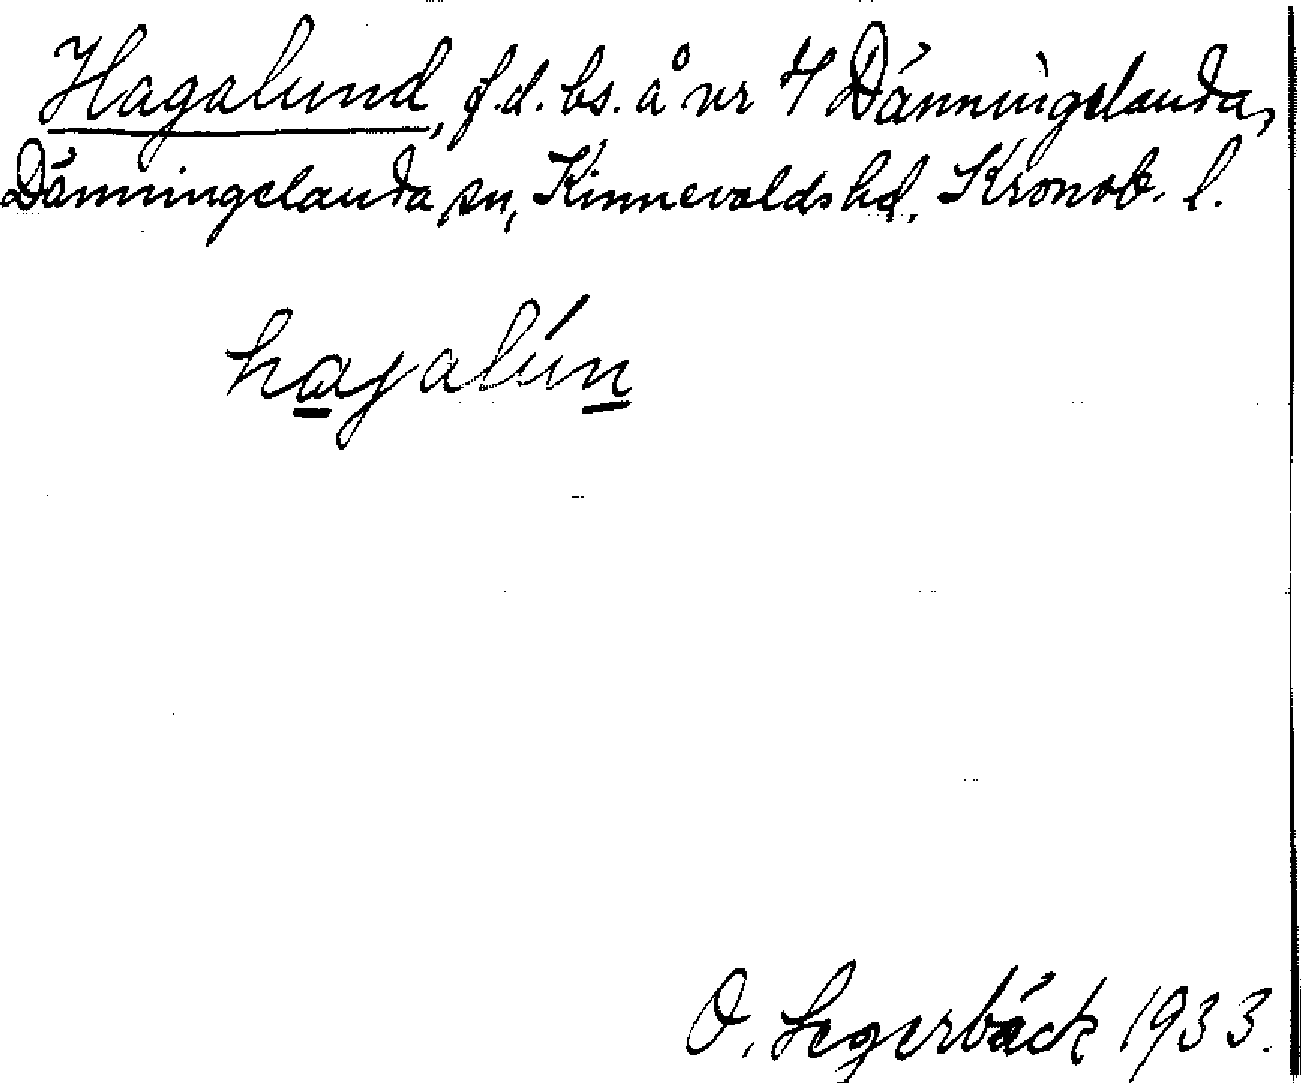 Hagalund, f.d. bs. å nr 4 Dänningelanda,
Dänningelanda sn, Kinnevalds hd, Kronob. l.
hagalún
O. Segerbäck 1933.